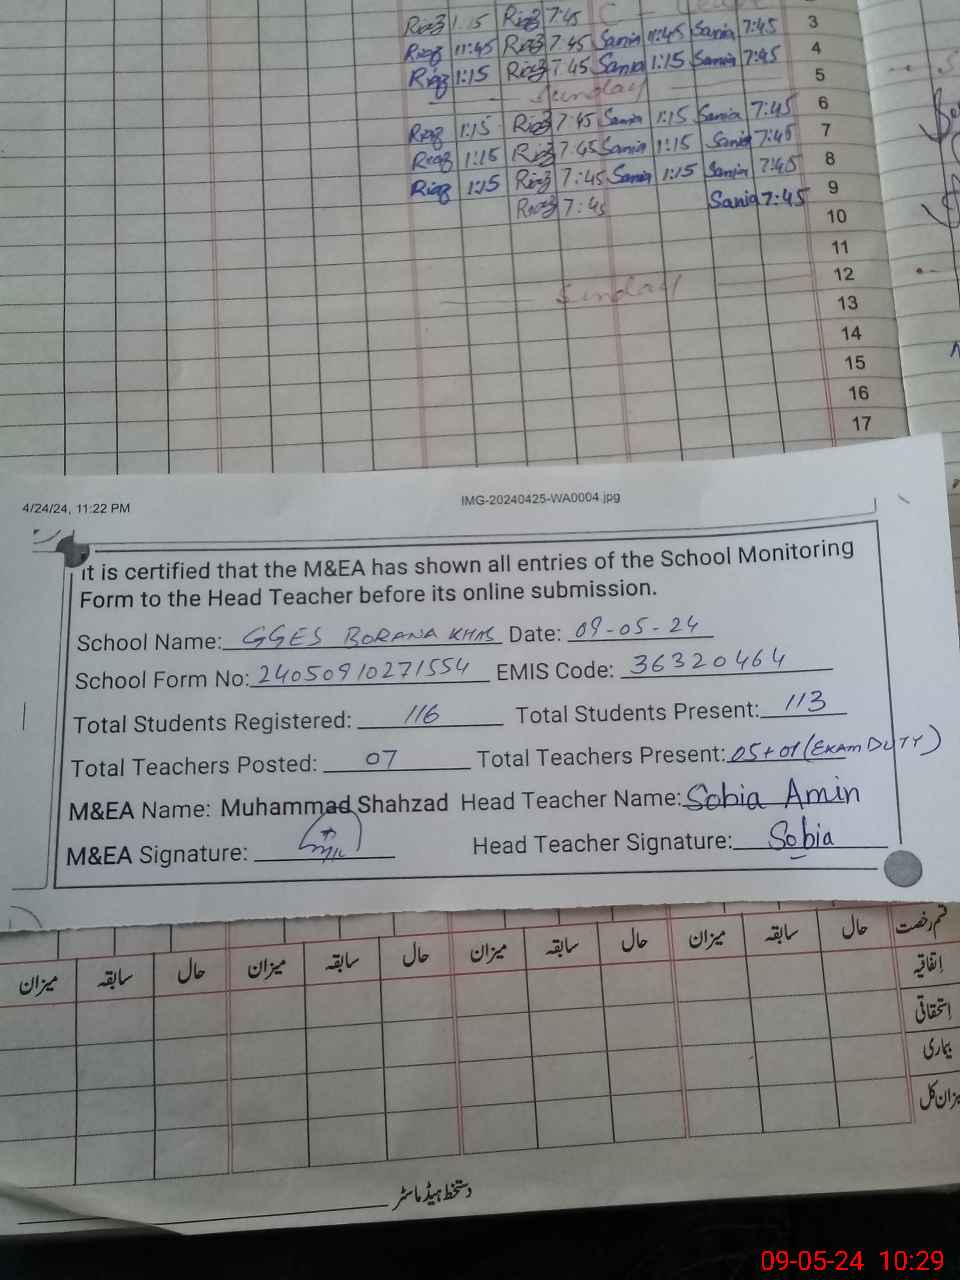 Riaz 1:15 Riaz 7:45 C - Leave 3
Riaz 11:45 Riaz 7:45 Sania 11:45 Sania 7:45 4
Riaz 1:15 Riaz 7:45 Sania 1:15 Sania 7:45 5
Sunday 6
Riaz 1:15 Riaz 7:45 Sania 1:15 Sania 7:45 7
Riaz 1:15 Riaz 7:45 Sania 1:15 Sania 7:45 8
Riaz 1:15 Riaz 7:45 Sania 1:15 Sania 7:45 9
Riaz 7:45 Sania 7:45 10
11
Sunday 12
13
14
15
16
17
4/24/24, 11:22 PM IMG-20240425-WA0004.jpg
it is certified that the M&EA has shown all entries of the School Monitoring
Form to the Head Teacher before its online submission.
School Name: GGES BORANA KHAS Date: 09-05-24
School Form No: 24050910271554 EMIS Code: 36320464
Total Students Registered: 116 Total Students Present: 113
Total Teachers Posted: 07 Total Teachers Present: 05+01 (EXAM DUTY)
M&EA Name: Muhammad Shahzad Head Teacher Name: Sobia Amin
M&EA Signature: Head Teacher Signature: Sobia
قسم رخصت حال سابقہ میزان حال سابقہ میزان حال سابقہ میزان حال سابقہ میزان
اتفاقیہ
استحقاقی
بیماری
میزان کل
دستخط ہیڈ ماسٹر
09-05-24 10:29